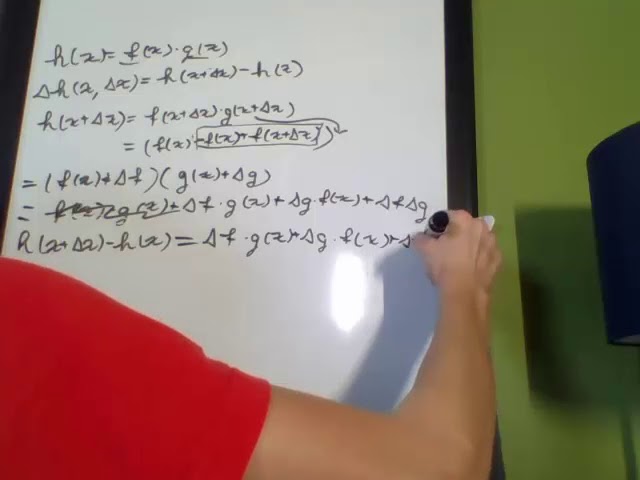 h(x) = f(x)·g(x)
Δh(x, Δx) = h(x+Δx) - h(x)
h(x+Δx) = f(x+Δx)·g(x+Δx)
= (f(x) - f(x) + f(x+Δx))
= (f(x) + Δf)(g(x) + Δg)
= f(x)g(x) + Δf·g(x) + Δg·f(x) + ΔfΔg
h(x+Δx) - h(x) = Δf·g(x) + Δg·f(x) + Δ